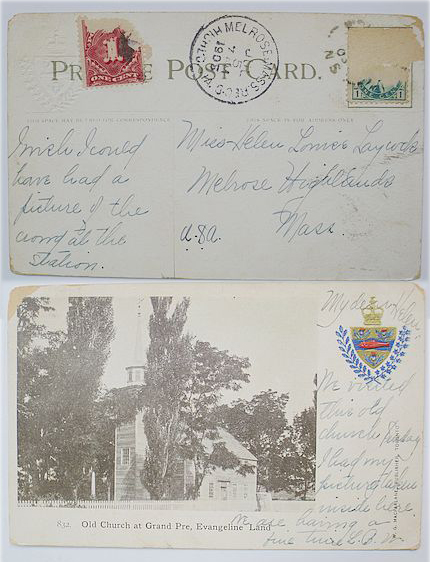 PRIVATE POST CARD.
THIS SPACE MAY BE USED FOR CORRESPONDENCE
THIS SPACE IS FOR ADDRESS ONLY
ONE CENT
1
MELROSE MASS. REC'D
7
1
1
N S
I wish I could
have had a
picture of the
crowd at the
Station.
Miss Helen Louise Laycock
Melrose Highlands
Mass.
U.S.A.
My dear Helen
We visited
this old
church
I had my
picture taken
inside here
We are having a
fine time L.A.W.
832. Old Church at Grand Pre, Evangeline Land